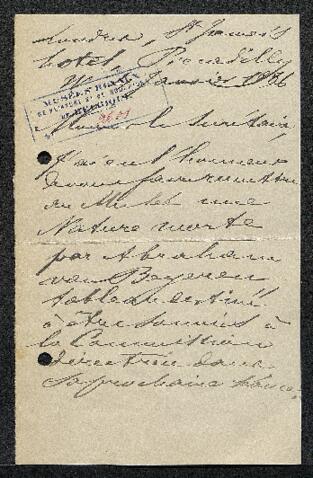 Londres, St James's
Hotel, Piccadilly
Janvier
MUSÉES ROYAUX
DE PEINTURE ET DE SCULPTURE
DE BELGIQUE
Monsieur le Secrétaire,
J'ai eu l'honneur
de vous faire remettre
au Musée une
Nature morte
par Abraham
van Beyeren
tableau destiné
à être soumis à
la Commission
directrice dans
sa prochaine séance.